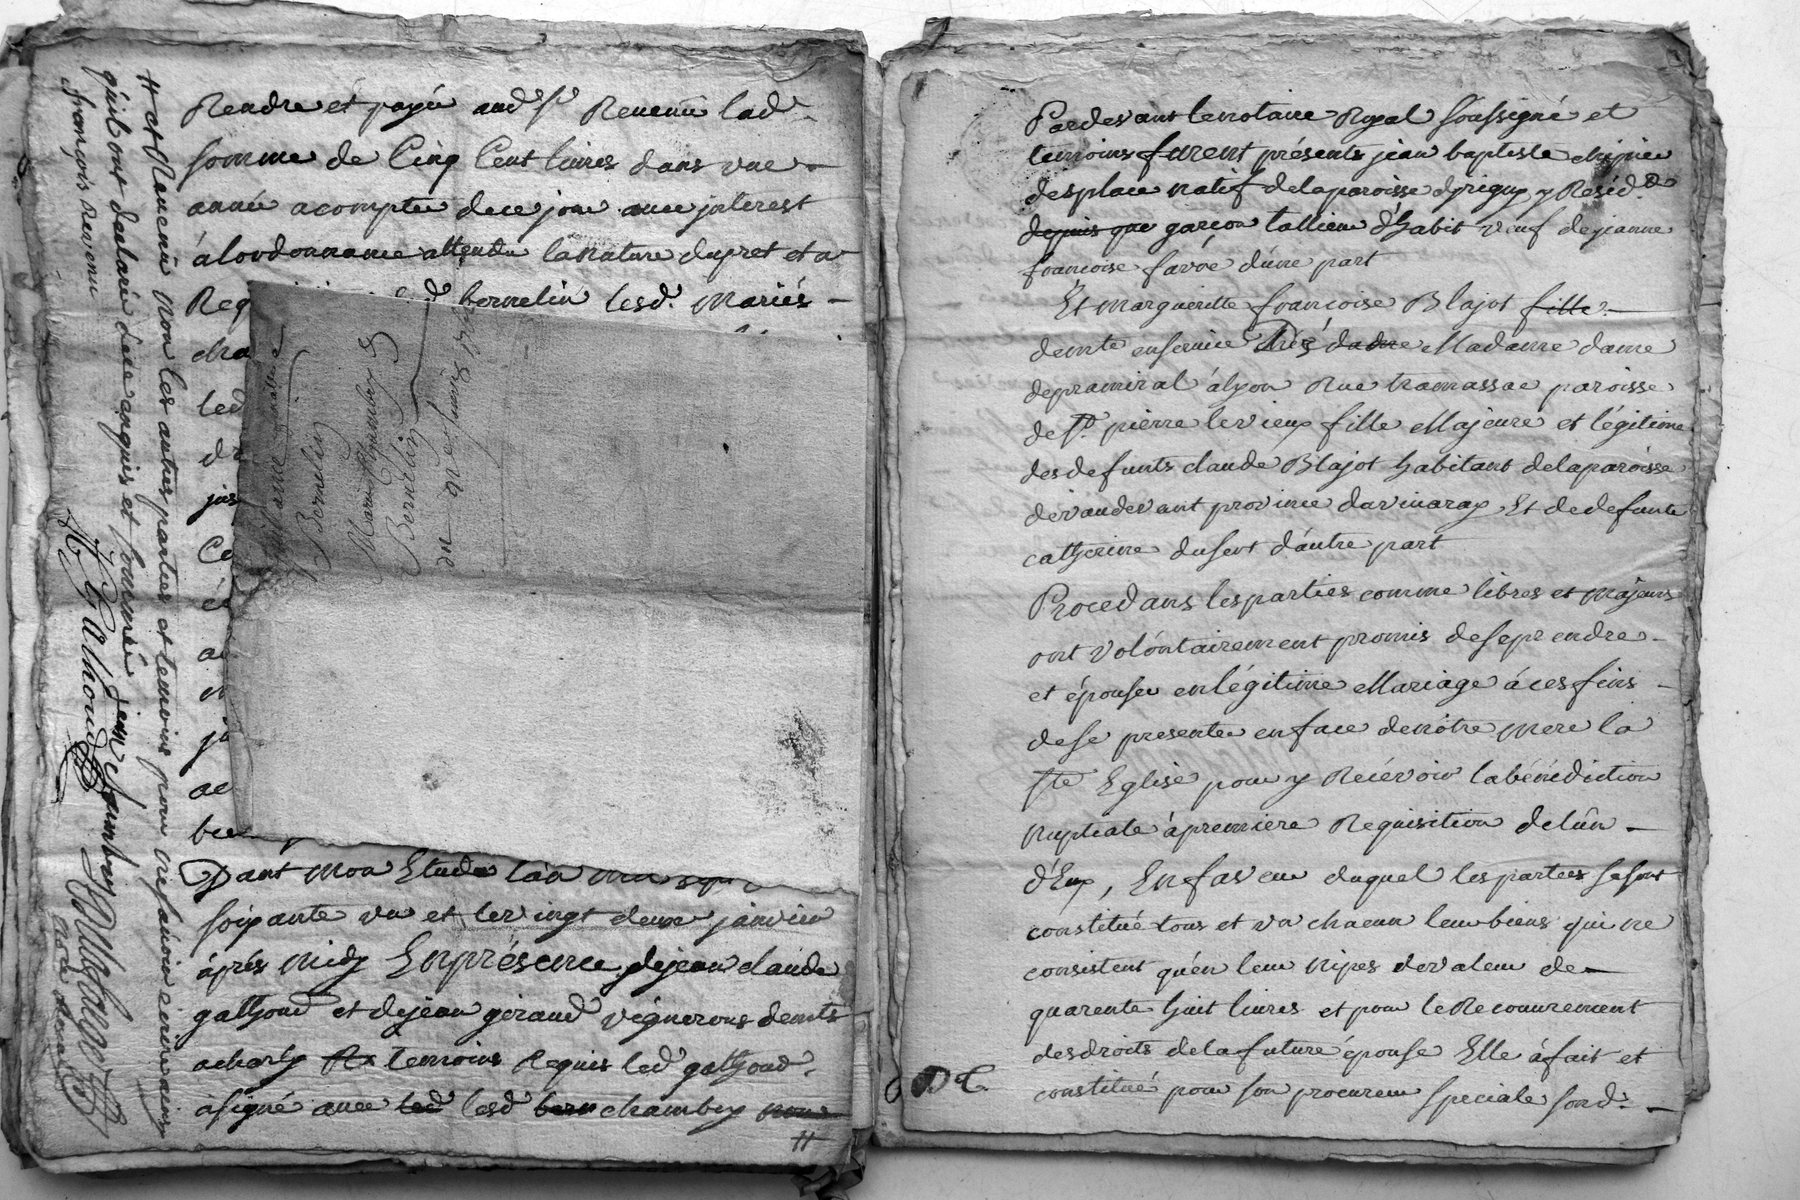 Rendre et payer aud Sr Revenu lad
somme de Cinq Cent livres dans une
année a compter de ce jour avec jnterest
à lordonnance attendu la nature du pret et a
Req bernelin lesd. Mariés
cha
led
jus
Ce
bie
Dans mon Etude lan mil sept
soixante un et le vingt deux janvier
àprés midy En présence de jean claude
gathoud et de jean giraud vignerons demts
a charly temoins Requis led gathoud
à signé avec led lesd bern chambry non
#
# et Revenu non les autres parties et temoins pour ne sçavoir ecrire ainsy
quils ont declaré de ce enquis et sommé
françois Revenu
jean chambry
J C Gathoud
Quittance
Bernelin
Marie chambry
Bernelin
du 22e janvier
Pardevant le notaire Royal soussigné et
temoins furent présents jean baptiste
desplace natif de la paroisse dyrigny y Resid.
depuis que garçon tallieur d'habit veuf de jeanne
francoise favre d'une part
Et margueritte francoise Blajot fille
demte en service chés dadre Madame dame
de pramiral à lyon Rue tramassac paroisse
de St. pierre le vieux fille Majeure et légitime
des defunts claude Blajot habitant de la paroisse
de vaudevant province du vivaray, Et de defunte
catherine dusert d'autre part
Procedans les parties comme libres et majeurs
ont volontairement promis de se prendre
et épouser en légitime Mariage à ces fins
de se presenter en face de nôtre mere la
Ste Eglise pour y Recevoir la bénédiction
nuptiale à premiere Requisition de lûn
d'Eux, En faveur duquel les parties se sont
constitué tous et un chacun leur biens qui ne
consistent qu'en leur nipes de valeur de
quarente huit livres et pour le Recouvrement
des droits de la future épouse Elle à fait et
constitué pour son procureur speciale sond.